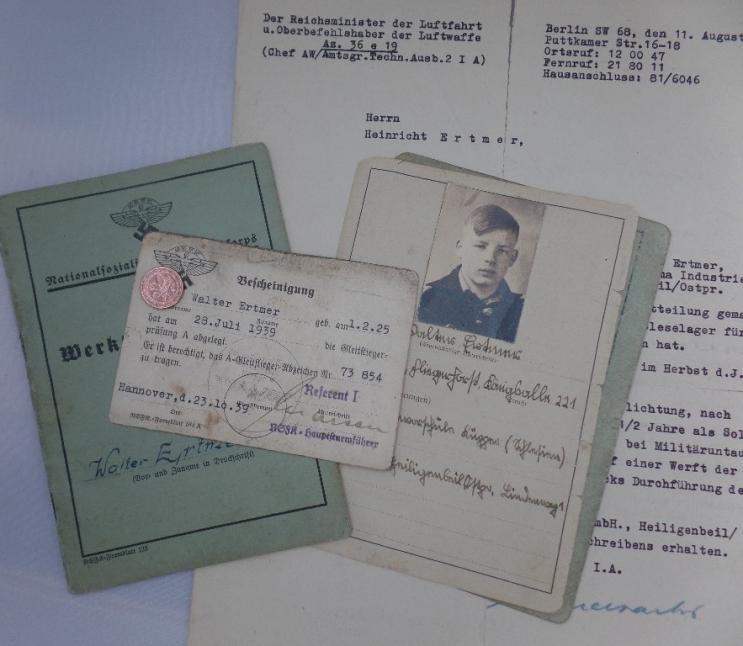 Der Reichsminister der Luftfahrt
u.Oberbefehlshaber der Luftwaffe
Az. 36 e 19
(Chef AW/Amtsgr.Techn.Ausb.2 I A)
Berlin SW 68, den 11. August
Puttkamer Str.16-18
Ortsruf: 12 00 47
Fernruf: 21 80 11
Hausanschluss: 81/6046
Herrn
Heinricht Ertmer,
Ertmer,
Industrie
il/Ostpr.
tteilung gema
leselager für
n hat.
im Herbst d.J.
lichtung, nach
1/2 Jahre als Sol
bei Militäruntau
f einer Werft der
cks Durchführung de
mbH., Heiligenbeil/
chreibens erhalten.
I.A.
Nationalsozial
orps
Werk
Walter Ertme
(Vor- und Zuname in Druckschrift)
Bescheinigung
Walter Ertmer
geb. am 1.2.25
hat am 28.Juli 1939 die Gleitflieger-
prüfung A abgelegt.
Er ist berechtigt, das A-Gleitflieger-Abzeichen Nr. 73 854
zu tragen.
Hannover,d.23.10.39
Referent I
NSFK-Hauptsturmführer
Walter Ertmer
Fliegerhorst, 221
(Schlesien)
Heiligenbeil/Ostpr., Lindenweg 1